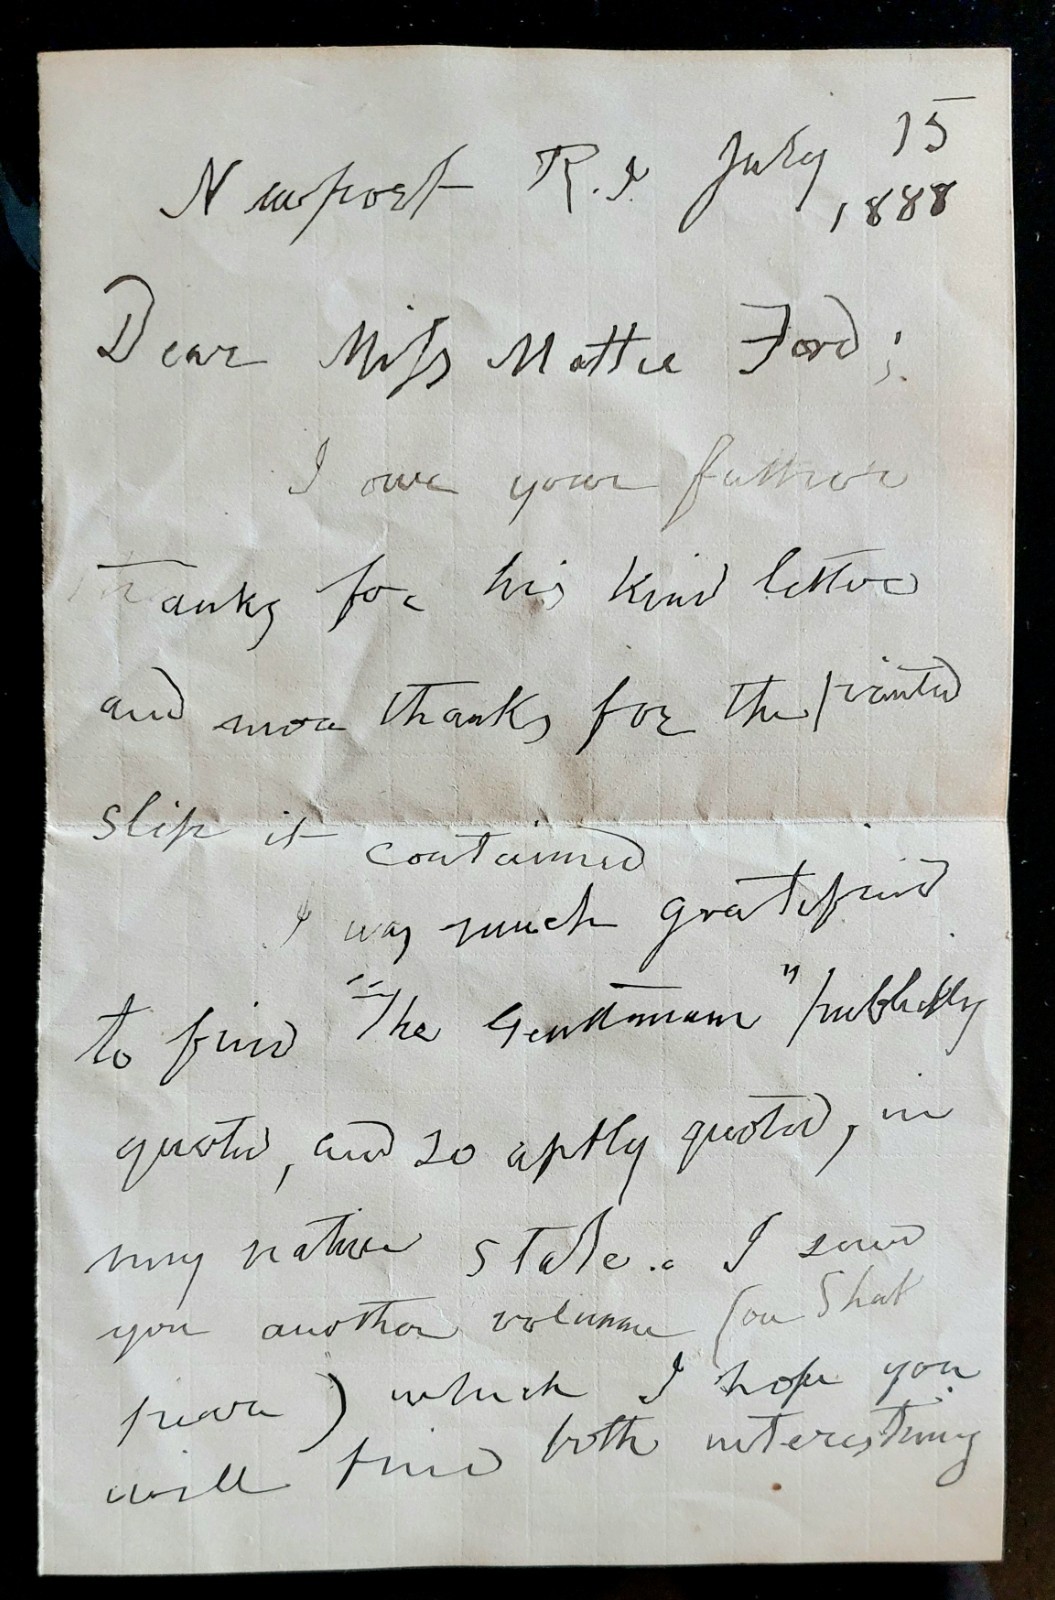 Newport R.I July 15
1888
Dear Miss Mattie Ford;
I owe your father
thanks for his kind letter
and more thanks for the printed
slip it contained
I was much gratified
to find "The Gentleman" publickly
quoted, and so aptly quoted, in
my native State. I send
you another volume (on Shak
peare) which I hope you
will find both interesting